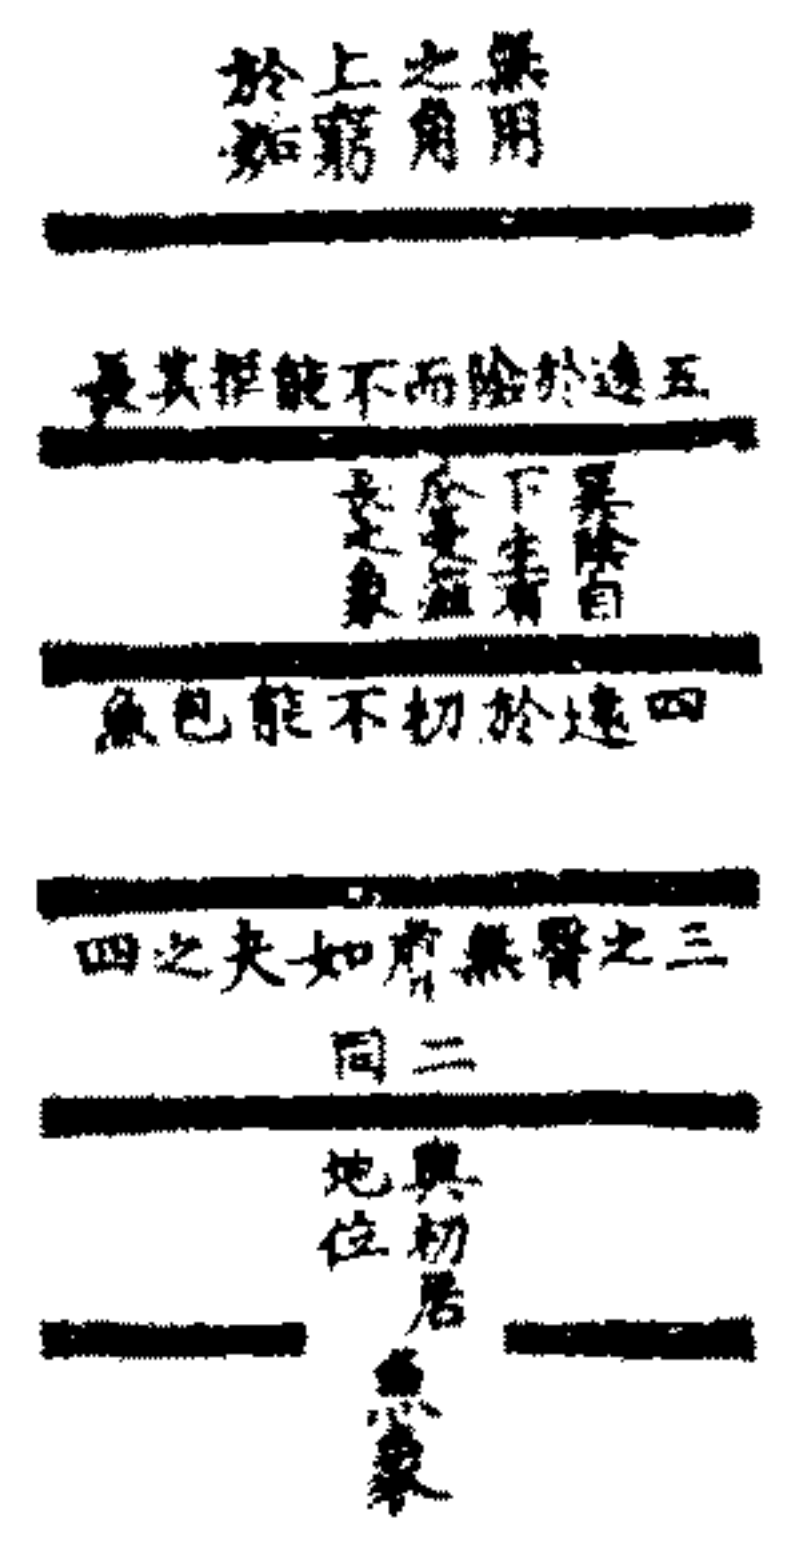 無用
之角
上窮
於姤
五遠於陰而不能揜其長
巽陰自
下生有
瓜蔓滋
長之象
四遠於初不能包魚
三之臀無膚如夬之四
二同
與初居
地位
魚象